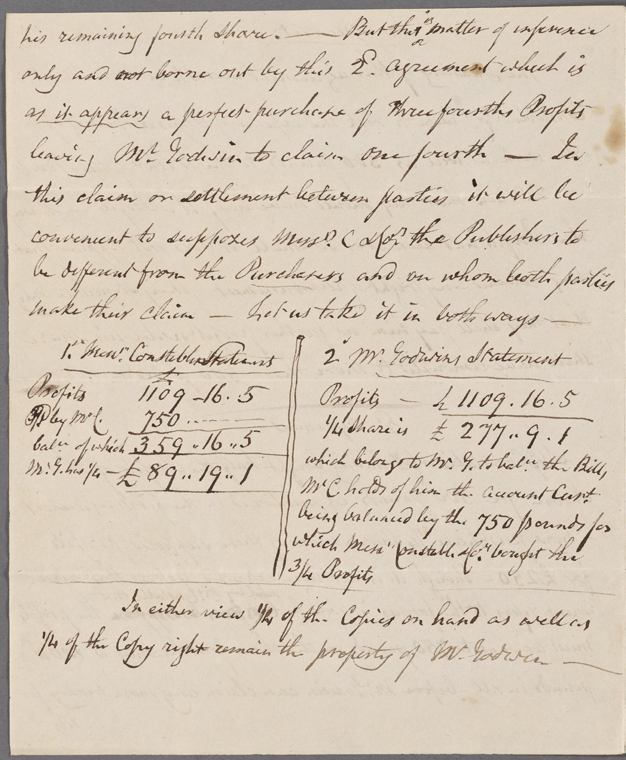 his remaining fourth share. — But this is matter of inference
only and not borne out by this agreement which is
as it appears a perfect purchase of three fourths Profits
leaving Mr. Godwin to claim one fourth — In
this claim or settlement between parties it will be
convenient to supposes Messrs. C & Co. the Publishers to
be different from the Purchasers and on whom both parties
make their claim — Let us take it in both ways —
1st. Messrs. Constables Statement
Profits £1109 - 16 . 5
Pd by Mr C. 750 .. ——
balce. of which 359 .. 16 .. 5
Mr. G. has 1/4 — £ 89 .. 19 .. 1
2d Mr. Godwins Statement
Profits — £ 1109 . 16 . 5
1/4 share is £ 277 .. 9 . 1
which belongs to Mr. G. to balce. the Bills
Mr C holds of him the account Curt.
being balanced by the 750 pounds for
which Messrs Constable & Co. bought the
3/4 Profits
In either view 1/4 of the Copies on hand as well as
1/4 of the Copy right remain the property of Mr. Godwin —